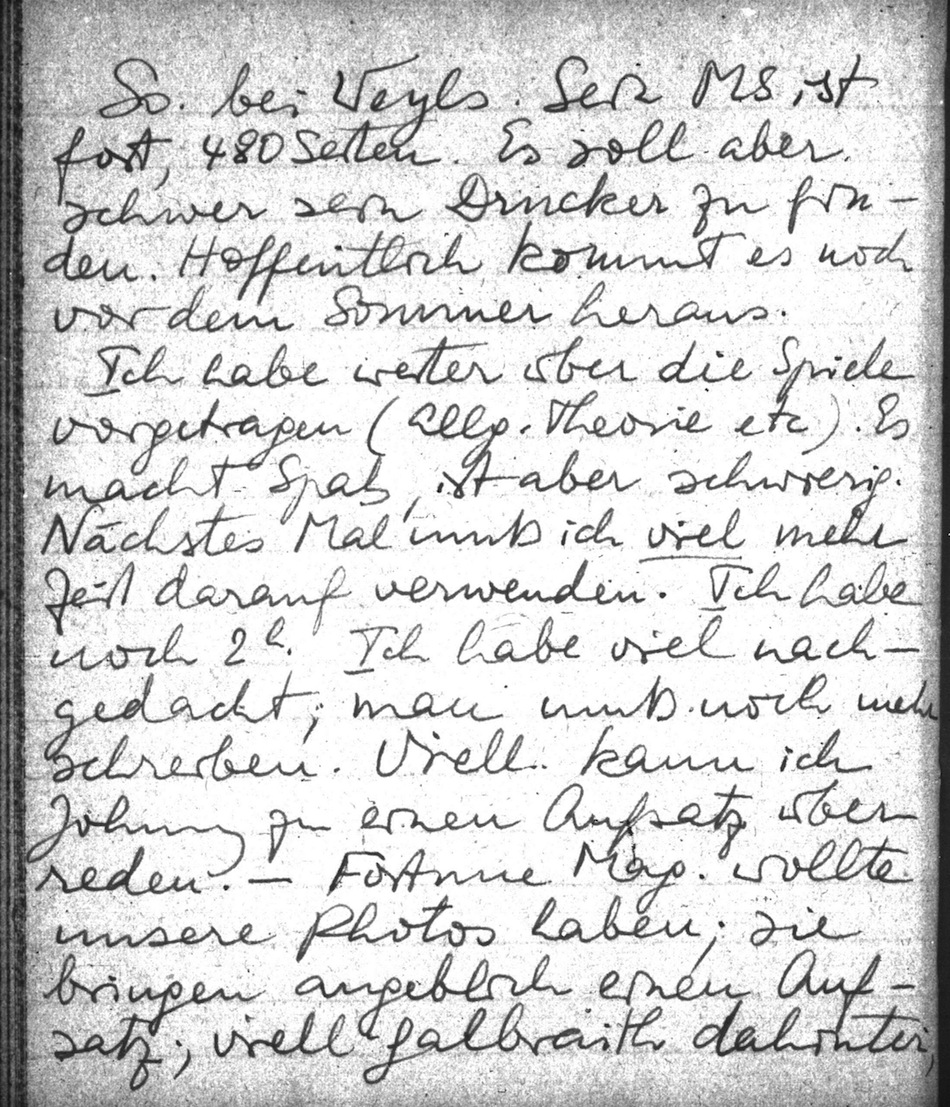 So. bei Weyls. Sein MS ist
fort, 480 Seiten. Es soll aber
schwer sein Drucker zu fin-
den. Hoffentlich kommt es noch
vor dem Sommer heraus.
Ich habe weiter über die Spiele
vorgetragen (allg. Theorie etc). Es
macht Spaß, ist aber schwierig.
Nächstes Mal muß ich viel mehr
Zeit darauf verwenden. Ich habe
noch 2h. Ich habe viel nach-
gedacht; man muß noch mehr
schreiben. Viell. kann ich
Johnny zu einen Aufsatz über-
reden. – Fortune Mag. wollte
unsere Photos haben; sie
bringen angeblich einen Auf-
satz; viell Galbraith dahinter,